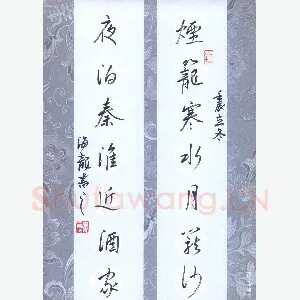 壬辰立冬
煙籠寒水月籠沙
夜泊秦淮近酒家
海龍書